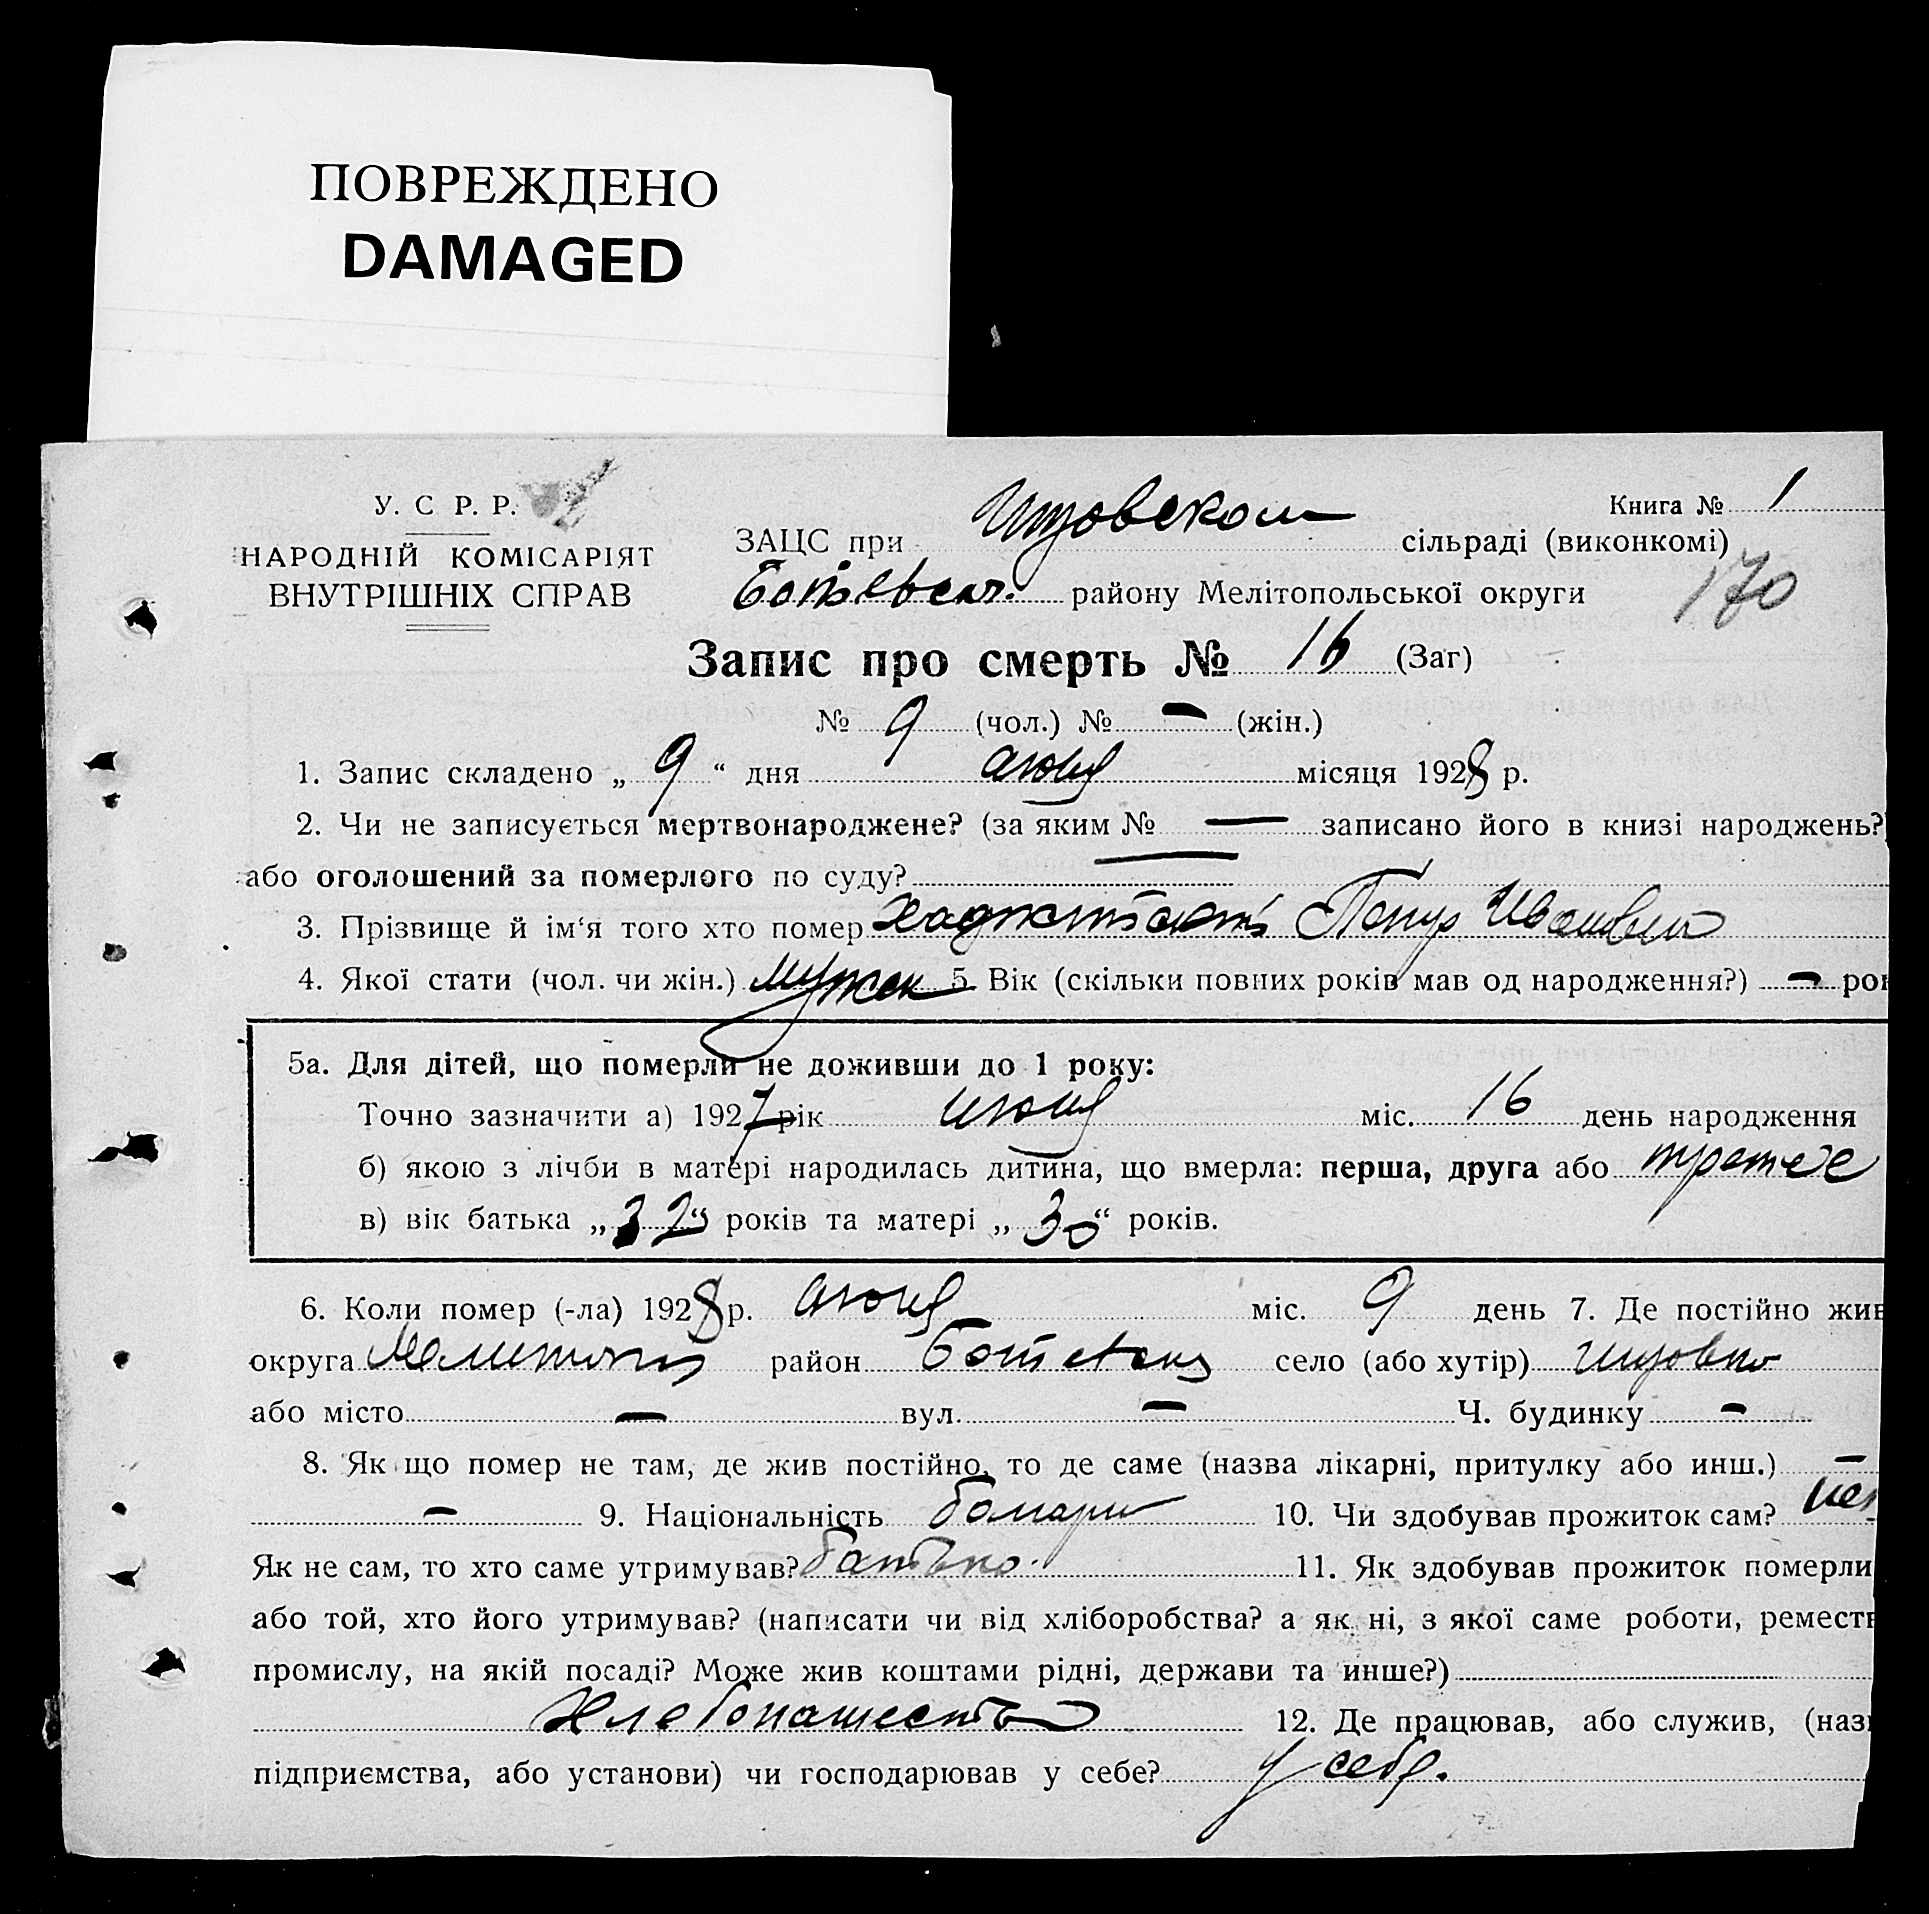 ПОВРЕЖДЕНО
DAMAGED
У. С Р. Р.
НАРОДНІЙ КОМІСАРІЯТ
ВНУТРІШНІХ СПРАВ
Книга № 1
ЗАЦС при сільраді (виконкомі)
170
району Мелітопольської округи
Запис про смерть № 16 (Заг)
№ 9 (чол.) № — (жін.)
1. Запис складено „ 9 “ дня місяця 1928 р.
2. Чи не записується мертвонароджене? (за яким № — записано його в книзі народжень?)
або оголошений за померлого по суду? —
3. Прізвище й ім‘я того хто помер
4. Якої стати (чол. чи жін.) мужск 5. Вік (скільки повних років мав од народження?) — рок
5а. Для дітей, що померли не доживши до 1 року:
Точно зазначити а) 1927 рік міс. 16 день народження
б) якою з лічби в матері народилась дитина, що вмерла: перша, друга або третее
в) вік батька „ 32 “ років та матері „ 30 “ років.
6. Коли помер (-ла) 1928 р. міс. 9 день 7. Де постійно жив
округа район село (або хутір)
або місто — вул. — Ч. будинку —
8. Як що помер не там, де жив постійно, то де саме (назва лікарні, притулку або инш.) —
— 9. Національність болгари 10. Чи здобував прожиток сам? нет
Як не сам, то хто саме утримував? батько. 11. Як здобував прожиток померли
або той, хто його утримував? (написати чи від хліборобства? а як ні, з якої саме роботи, реместв
промислу, на якій посаді? Може жив коштами рідні, держави та инше?)
Хлебопашество 12. Де працював, або служив, (назв
підприємства, або установи) чи господарював у себе? у себе.